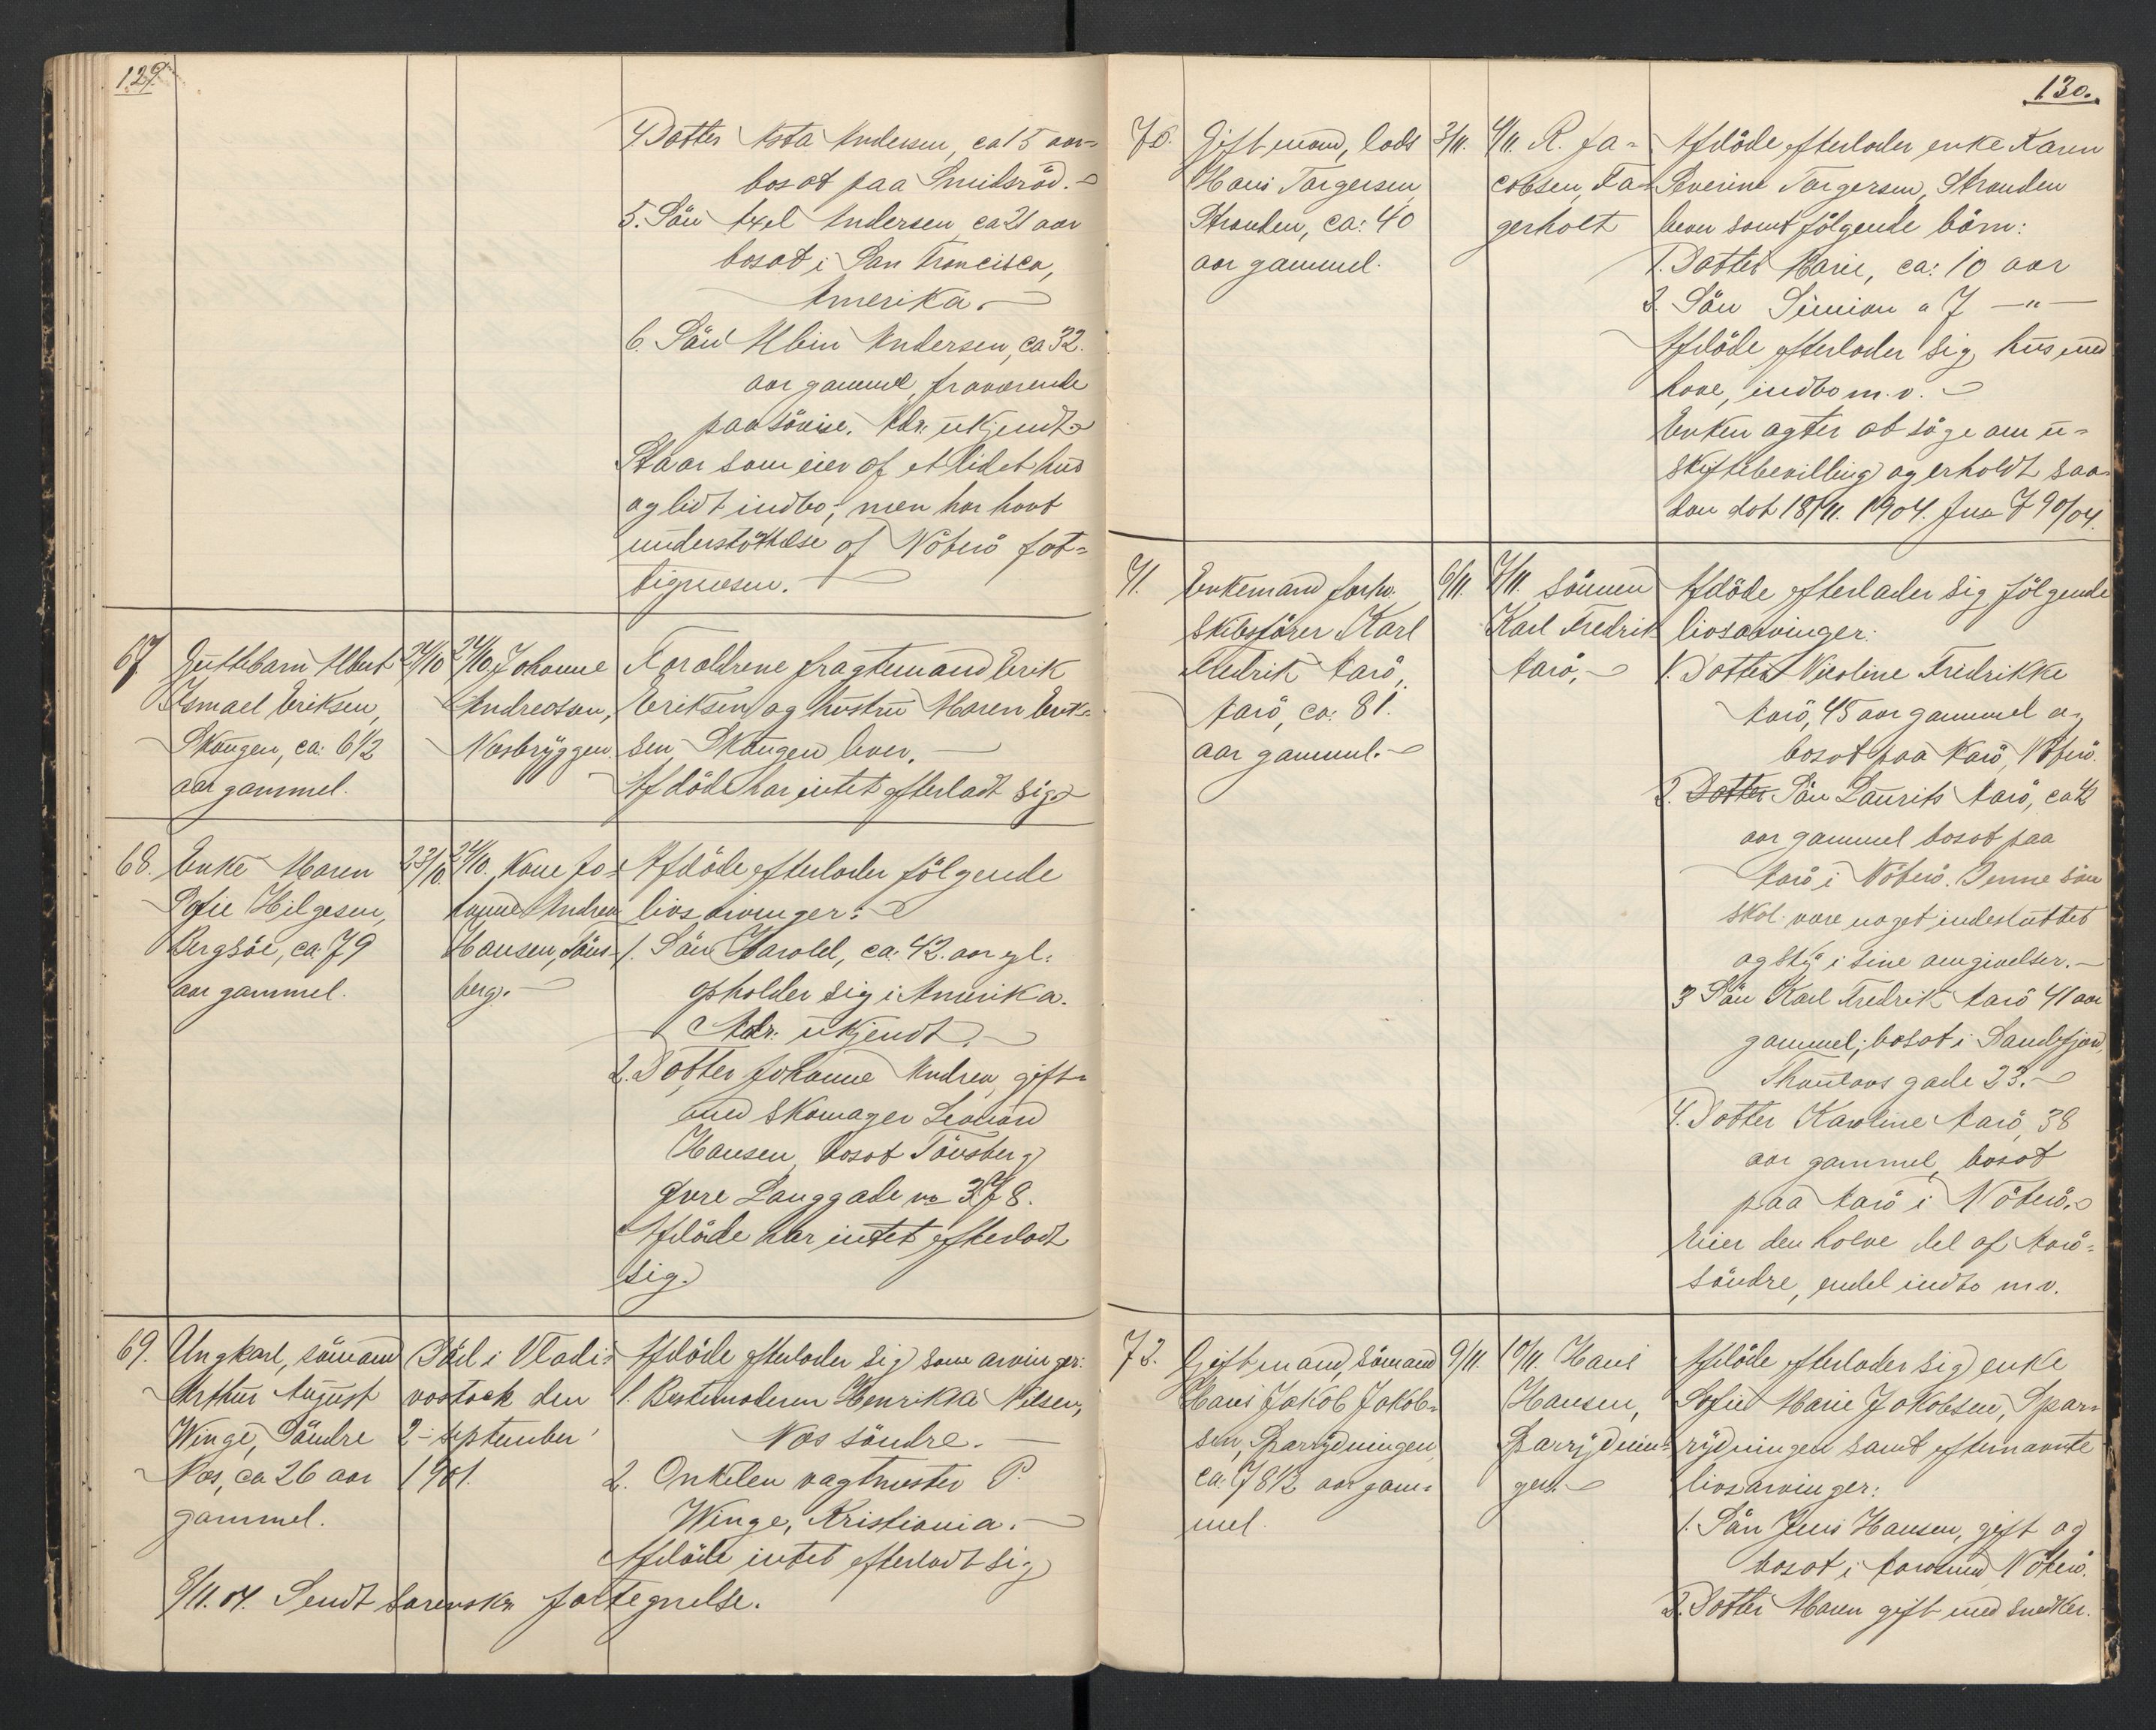 129
4. Datter Asta Andersen, ca 15 aar
bosat paa Smidsröd.
5. Sön Axel Andersen ca 21 aar
bosat i San Francisco,
Amerika.
6. Sön Albin Andersen, ca 32
aar gammel, fraværende
paa söreise. Adr: ukjendt
Staar som eier af et lidet hus
og lidt indbo; men har havt
understöttelse af Nöterö fat-
tigvæsen.
67. Guttebarn Albert
Ismael Eriksen,
Skougen, ca: 6 1/2
aar gammel.
24/10
24/10. Johanne
Andreasen,
Næsbryggen.
Forældrene fragtemand Erik
Eriksen og hustru Maren Erik-
sen Skougen lever.
Afdöde har intet efterladt sig
68. Enke Maren
Sofie Hilgesen,
Bergsöe, ca 79
aar gammel.
23/10.
24/10. Kone Jo-
hanne Andrea
Hansen, Töns-
berg.
Afdöde efterlader fölgende
livsarvinger:
1. Sön Harald, ca: 42. aar gl.
opholder sig i Amerika.
Adr: ukjendt.
2. Datter Johanne Andrea, gift
med skomager
Hansen, bosat Tönsberg
Övre Langgade no 37 8.
Afdöde har intet efterladt
sig.
69. Ungkarl, sömand
Arthur August
Winge, Söndre
Næs, ca 26 aar
gammel.
Död i Vladi-
vostock den
2 september
1901.
Afdöde efterlader sig som arvinger:
1. Bestemoderen Henrikka Nilsen,
Næs söndre.
2. Onkelen vagtmester P.
Winge, Kristiania.
Afdöde intet efterladt sig
8/11.04. Sendt Sorenskr. fortegnelse.
130.
70. Gift mand, lods
Hans Torgersen
Stranden, ca: 40
aar gammel.
3/11.
4/11. R. Ja-
cobsen, Fa-
gerholt
Afdöde efterlader enke Karen
Severine Torgersen, Stranden
samt fölgende börn:
1. Datter Marie, ca: 10 aar
2. Sön Simion " 7 —"—
Afdöde efterlader sig hus med
have, indbo m.v.
Enken agter at söge om u-
skiftebevilling og erholdt saa-
dan dat 18/11. 1904. Jur 790/04.
71. Enkemand forhv.
skibsförer Karl
Fredrik Aarö,
Aarö, ca: 81.
aar gammel.
6/11.
7/11. Sönnen
Karl Fredrik
Aarö,
Afdöde efterlader sig fölgende
livsarvinger:
1. Datter Nicoline Fredrikke
Aarö, 45 aar gammel og
bosat paa Aarö, Nöterö.
2. Datter Sön Laurits Aarö, ca 42
aar gammel bosat paa
Aarö i Nöterö. Denne sön
skal være noget indesluttet
og sky i sine omgivelser.
3 Sön Karl Fredrik Aarö 41 aar
gammel; bosat i Sandefjord,
gade 23.
4. Datter Karoline Aarö, 38
aar gammel, bosat
paa Aarö i Nöterö.
Eier den halve del af Aarö-
söndre, endel indbo m.v.
72. Gift mand, sömand
Hans Jakob Jakob-
sen, Sparrydningen
ca: 78 1/2 aar gam-
mel.
9/11.
10/11. Hans
Hansen,
Sparrydnin-
gen.
Afdöde efterlader sig enke
Sofie Marie Jakobsen, Spar-
rydningen samt efternævnte
livsarvinger:
1. Sön Jens Hansen, gift og
bosat i Aarösund, Nöterö.
2. Datter Maren gift med snedker.